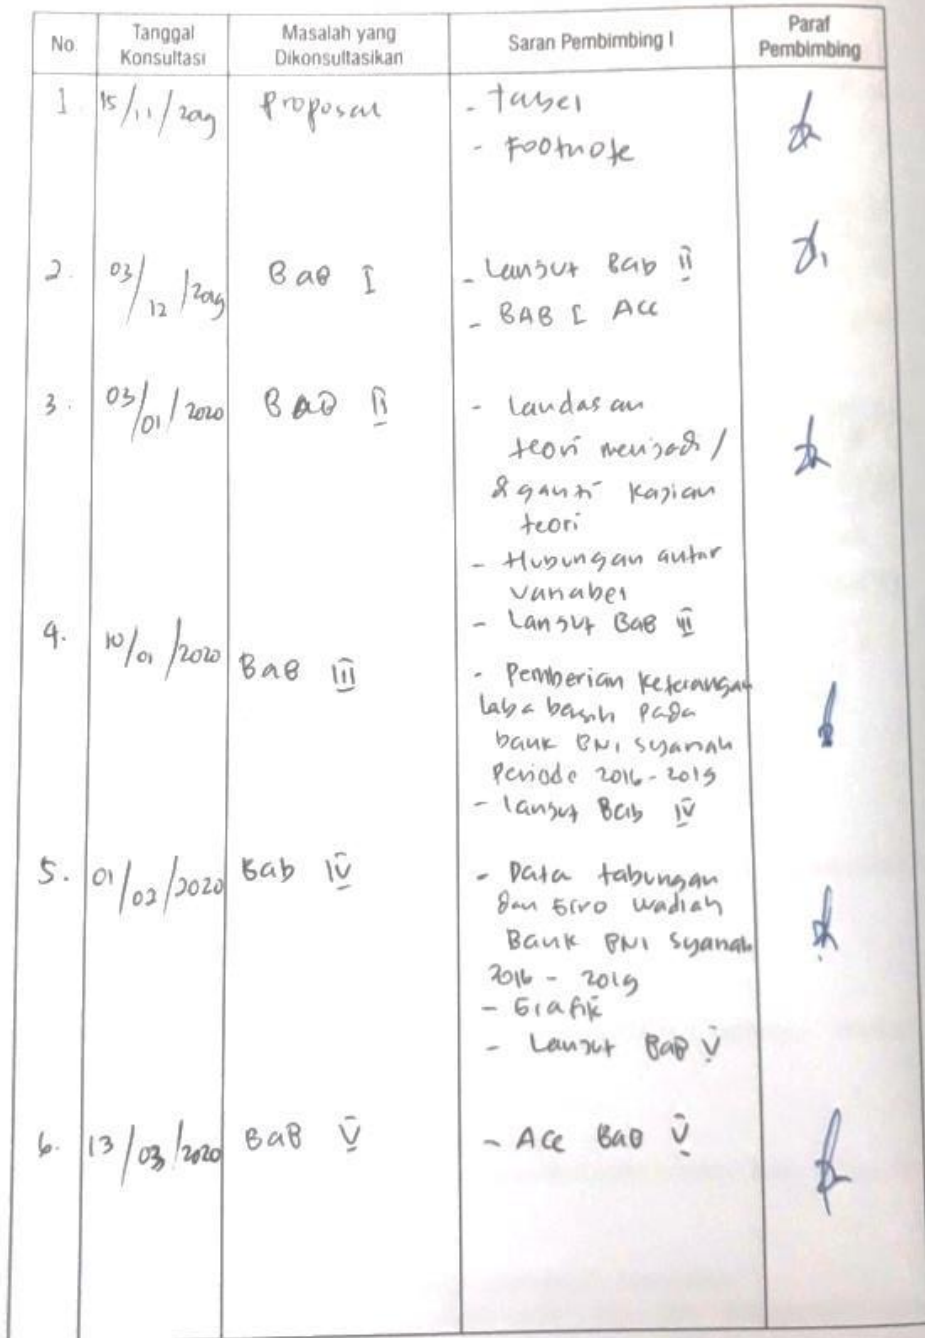 No. Tanggal Konsultasi Masalah yang Dikonsultasikan Saran Pembimbing I Paraf Pembimbing
1. 15/11/2019 Proposal - Tabel
- Footnote
2. 03/12/2019 BaB I - Lanjut Bab II
- BAB I Acc
3. 03/01/2020 BAB II - Landasan
teori menjadi /
diganti Kajian
teori
- Hubungan antar
variabel
- Lanjut BaB III
4. 10/01/2020 BaB III - Pemberian Keterangan
laba bersih pada
bank BNI syariah
Periode 2016-2019
- lanjut Bab IV
5. 01/02/2020 Bab IV - Data tabungan
dan Giro wadiah
Bank BNI Syariah
2016 - 2019
- Grafik
- Lanjut BaB V
6. 13/03/2020 BaB V - Acc BaB V